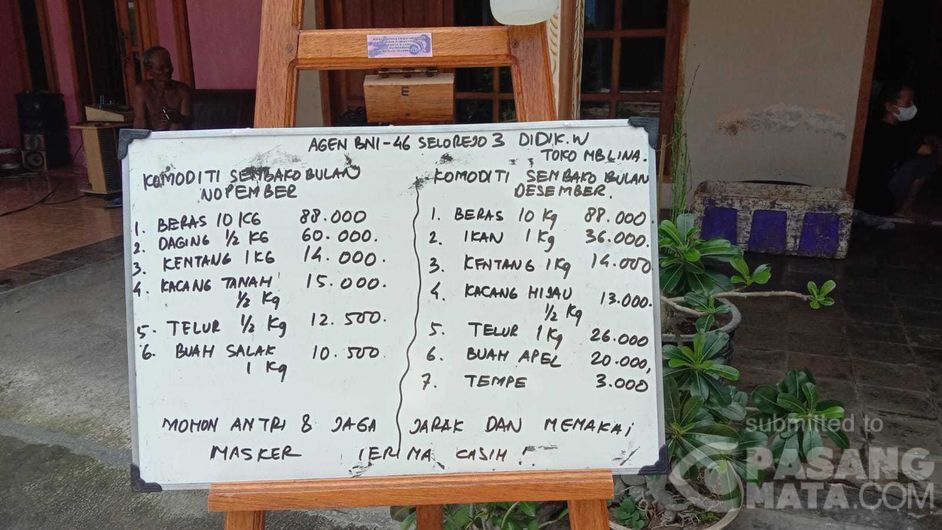 AGEN BNI-46 SELOREJO 3 DIDIK.W
TOKO MBLINA.
KOMODITI SEMBAKO BULAN
NOPEMBER
1. BERAS 10 KG 88.000
2. DAGING 1/2 KG 60.000.
3. KENTANG 1 KG 14.000
4. KACANG TANAH 15.000
1/2 Kg
5. TELUR 1/2 Kg 12.500.
6. BUAH SALAK 10.500
1 Kg
KOMODITI SEMBAKO BULAN
DESEMBER.
1. BERAS 10 Kg 88.000.
2. IKAN 1 Kg 36.000.
3. KENTANG 1 Kg 14.000
4. KACANG HIJAU 13.000.
1/2 Kg
5. TELUR 1 Kg 26.000
6. BUAH APEL 20.000,
7. TEMPE 3.000
MOHON ANTRI & JAGA JARAK DAN MEMAKAI
MASKER TERIMA CASIH!
submitted to
PASANG
MATA.COM